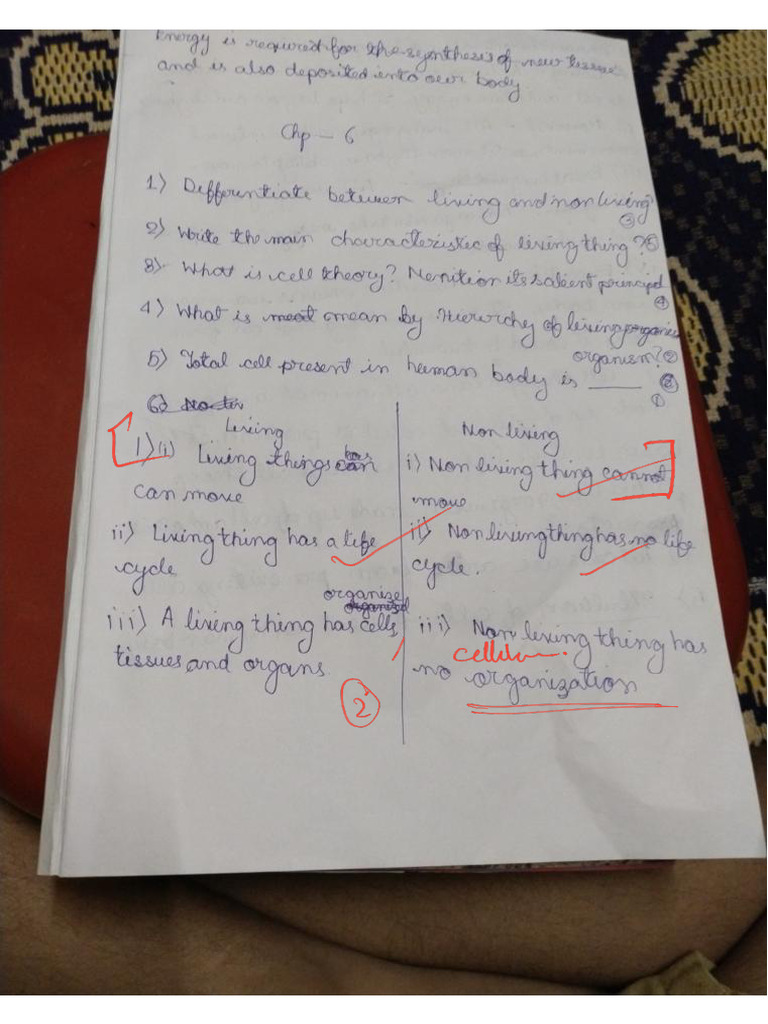 Energy is required for the synthesis of new tissue
and is also deposited into our body
Chp - 6
1) Differentiate between living and non living
③
2) Write the main characteristic of living thing? ⑤
3) What is cell theory? Menition its salient principal
④
4) What is meat mean by Hierarchy of living
organism? ②
5) Total cell present in human body is ____
①
6)
Living
Non living
1) i) Living things has
can move
i) Non living thing cannot
move
ii) Living thing has a life
cycle
ii) Non living thing has no life
cycle.
organise
organized
iii) A living thing has cells,
tissues, and organs.
iii) Non living thing has
cellular
no organization
②